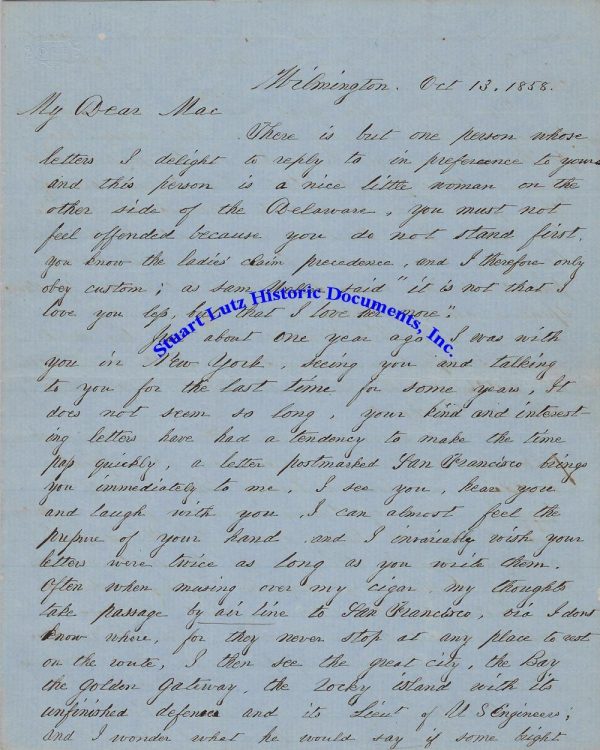 Wilmington. Oct 13, 1858.
My Dear Mac
There is but one person whose
letters I delight to reply to in preferaence to yours
and this person is a nice little woman on the
other side of the Delaware, you must not
feel offended because you do not stand first.
you know the ladies' claim precedence, and I therefore only
obey custom; as Sam said "it is not that I
love you less, but that I love her more".
about one year ago I was with
you in New York, seeing you and talking
to you for the last time for some years, It
does not seem so long, your kind and interest-
ing letters have had a tendency to make the time
pass quickly, a letter postmarked San Francisco brings
you immediately to me, I see you, hear you
and laugh with you, I can almost feel the
pressure of your hand and I invariably wish your
letters were twice as long as you write them.
Often when musing over my cigar my thoughts
take passage by air line to San Francisco, via I dont
know where, for they never stop at any place to rest
on the route, I then see the great city, the Bay
the Golden Gateway, the rocky island with its
unfinished defences and its Lieut of U S Engineers;
and I wonder what he would say if some bright
Stuart Lutz Historic Documents, Inc.